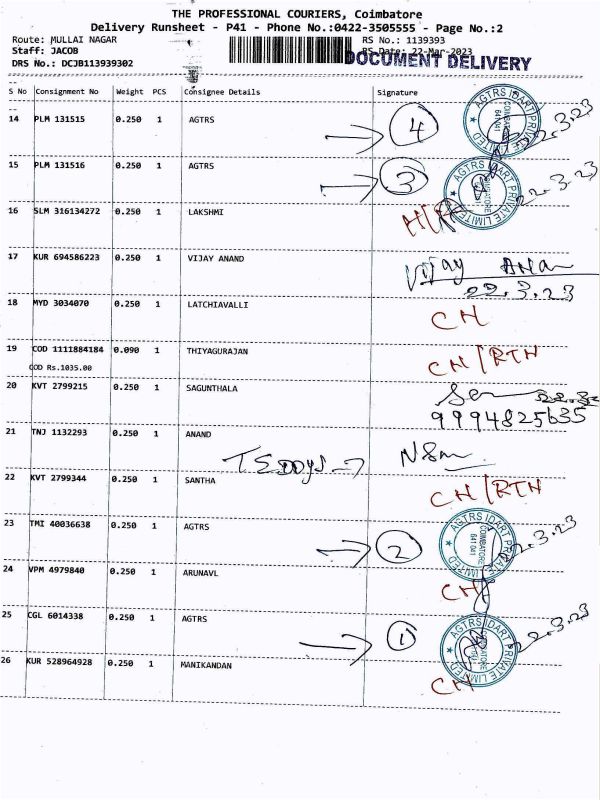 THE PROFESSIONAL COURIERS, Coimbatore
Delivery Runsheet - P41 - Phone No.:0422-3505555 - Page No.:2
Route: MULLAI NAGAR RS No.: 1139393
Staff: JACOB RS Date: 22-Mar-2023
DRS No.: DCJB113939302 DOCUMENT DELIVERY
S No Consignment No Weight PCS Consignee Details Signature
14 PLM 131515 0.250 1 AGTRS 4 AGTRS IDART PRIVATE LIMITED COIMBATORE 641 041 22.3.23
15 PLM 131516 0.250 1 AGTRS 3 AGTRS IDART PRIVATE LIMITED 22.3.23
16 SLM 316134272 0.250 1 LAKSHMI
17 KUR 694586223 0.250 1 VIJAY ANAND Vijay Anan
22.3.23
18 MYD 3034070 0.250 1 LATCHIAVALLI CH
19 COD 1111884184 0.090 1 THIYAGURAJAN CH/RTN
COD Rs.1035.00
20 KVT 2799215 0.250 1 SAGUNTHALA
9994825635
21 TNJ 1132293 0.250 1 ANAND
22 KVT 2799344 0.250 1 SANTHA CH/RTN
23 TMI 40036638 0.250 1 AGTRS 2 AGTRS IDART PRIVATE LIMITED COIMBATORE 641 041 22.3.23
24 VPM 4979840 0.250 1 ARUNAVL CH
25 CGL 6014338 0.250 1 AGTRS 1 AGTRS IDART PRIVATE LIMITED 22.3.23
26 KUR 528964928 0.250 1 MANIKANDAN CH